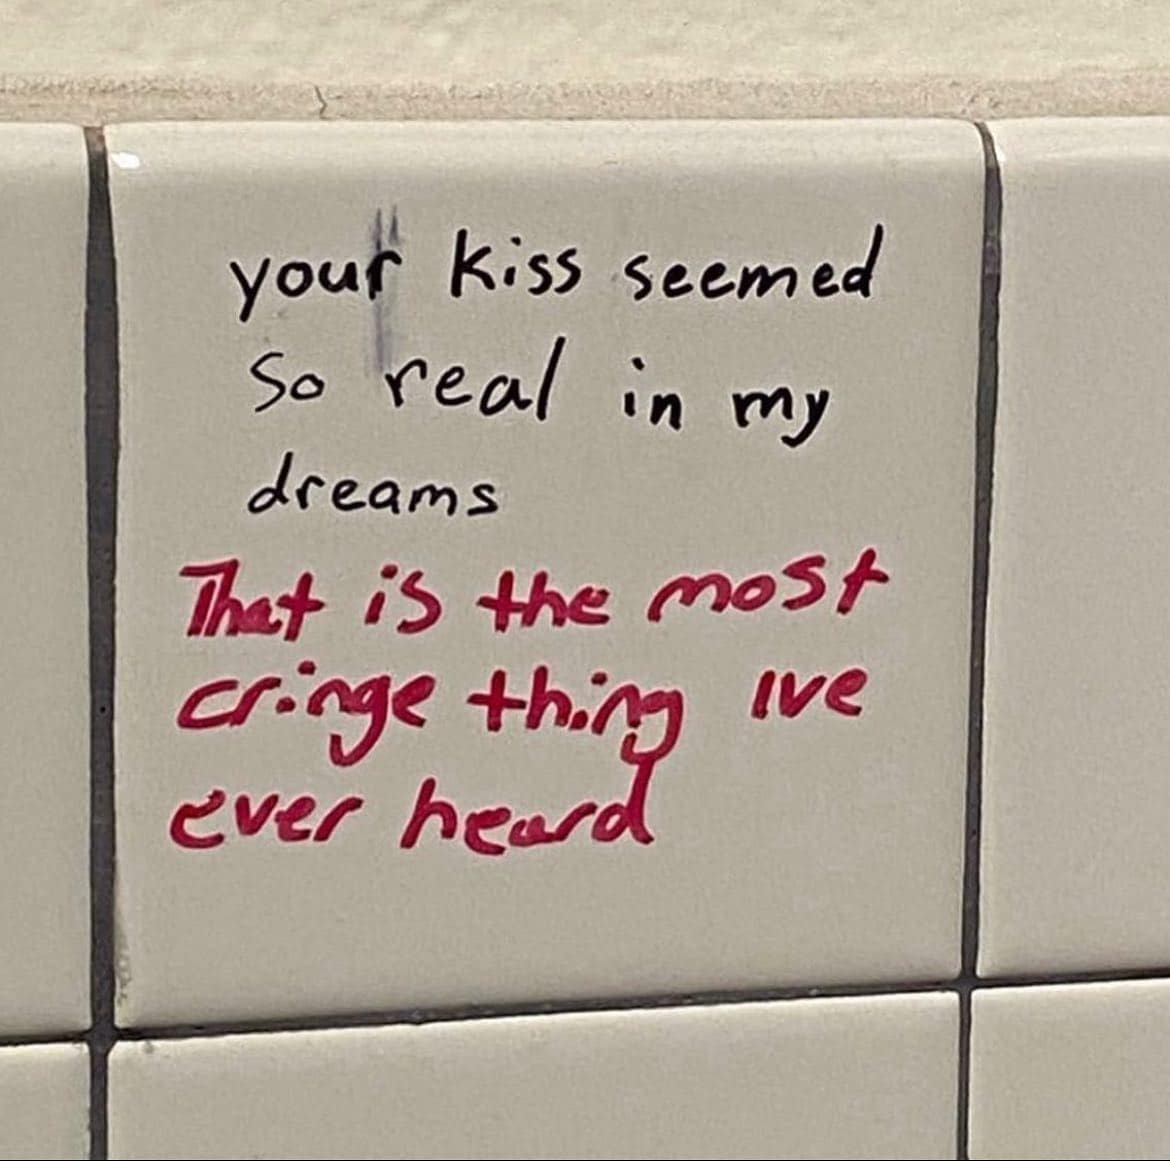 your kiss seemed
so real in my
dreams
That is the most
cringe thing Ive
ever heard